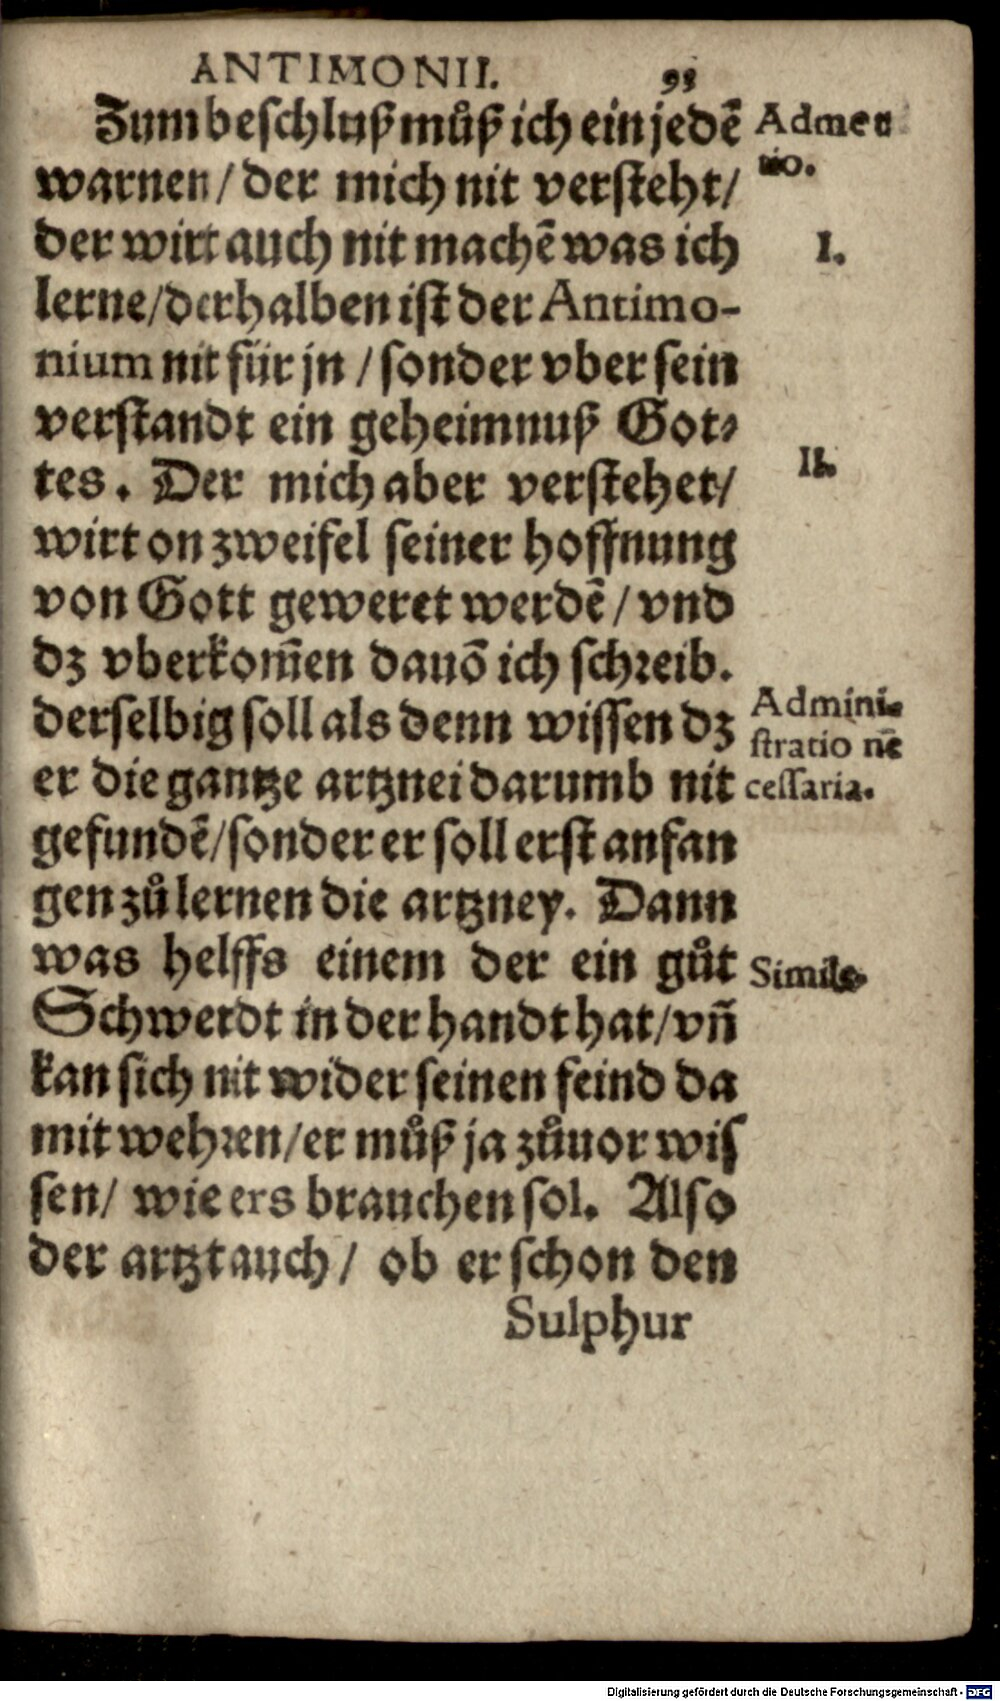 ANTIMONII. 93
Zum beschluß můß ich ein jedē
warnen / der mich nit versteht /
der wirt auch nit machē was ich
lerne / derhalben ist der Antimo-
nium nit für jn / sonder vber sein
verstandt ein geheimnuß Got-
tes. Der mich aber verstehet /
wirt on zweifel seiner hoffnung
von Gott geweret werdē / vnd
dz vberkom̄en dauō ich schreib.
derselbig soll als denn wissen dz
er die gantze artznei darumb nit
gefundē / sonder er soll erst anfan
gen zů lernen die artzney. Dann
was helffs einem der ein gůt
Schwerdt in der handt hat / vn̄
kan sich nit wider seinen feind da
mit wehren / er můß ja zůuor wis
sen / wie ers brauchen sol. Also
der artzt auch / ob er schon den
Sulphur
Admen
tio.
I.
II.
Admini-
stratio nē
cessaria.
Simile.
Digitalisierung gefördert durch die Deutsche Forschungsgemeinschaft - DFG